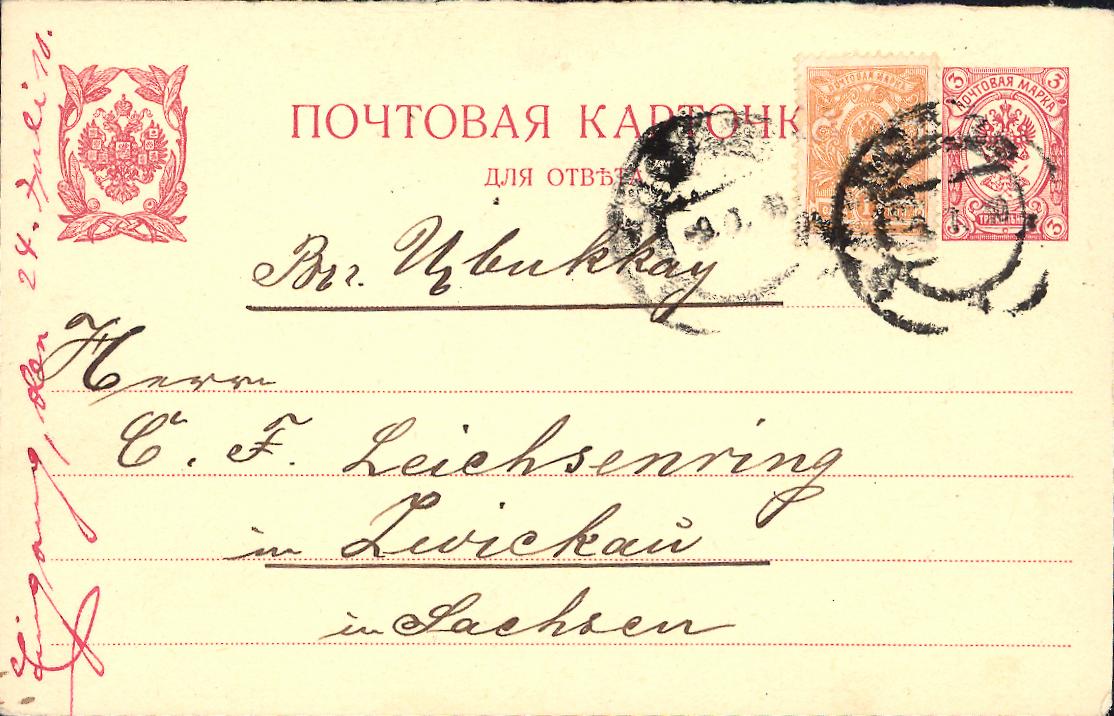 ПОЧТОВАЯ КАРТОЧК
ДЛЯ ОТВѢТА
ПОЧТОВАЯ МАРКА
ПОЧТОВАЯ МАРКА
3 3
3 3
Въ Цвиккау
Herrn
C. F. Leichsenring
in Zwickau
in Sachsen
Eingang, den 24. Juli 10.